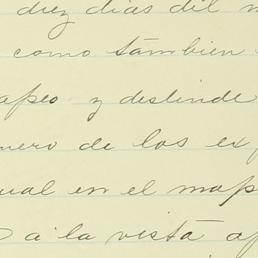 diez dias del m
como también
apeo y deslinde
mero de los ex
ual en el map
o á la vista ap